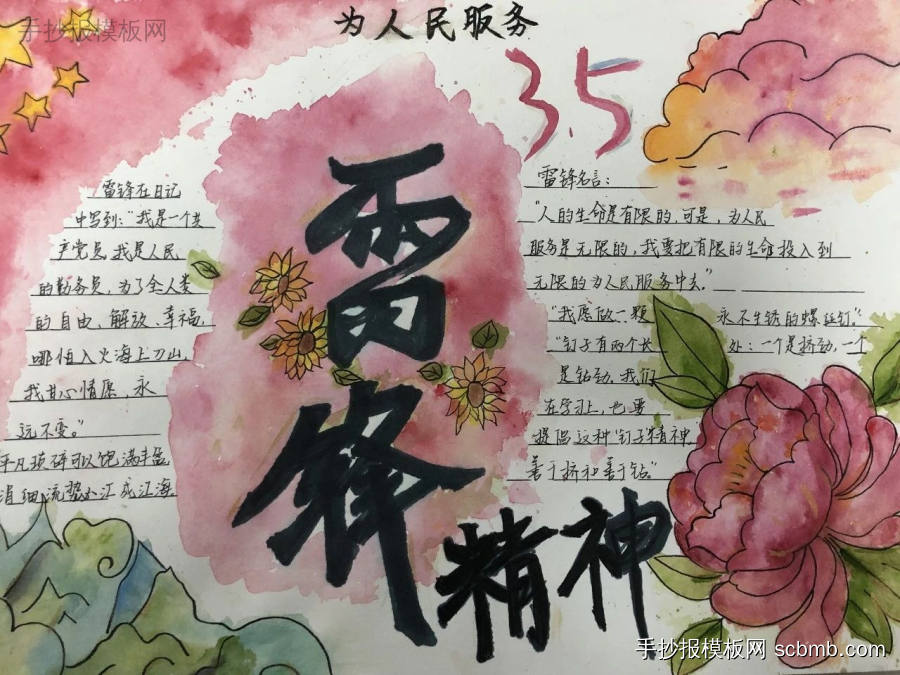 手抄报模板网
为人民服务
3.5
雷锋精神
雷锋在日记
中写到:“我是一个共
产党员,我是人民
的勤务员,为了全人类
的自由、解放、幸福,
哪怕入火海上刀山,
我甘心情愿,永
远不变。”
平凡琐碎可以饱满丰盈
涓细流势必汇成江海
雷锋名言:
“人的生命是有限的,可是,为人民
服务是无限的,我要把有限的生命投入到
无限的为人民服务中去”
“我愿做一颗永不生锈的螺丝钉。”
“钉子有两个长处:一个是挤劲,一个
是钻劲,我们
在学习上,也要
提倡这种“钉子”精神,
善于挤和善于钻。”
手抄报模板网 scbmb.com